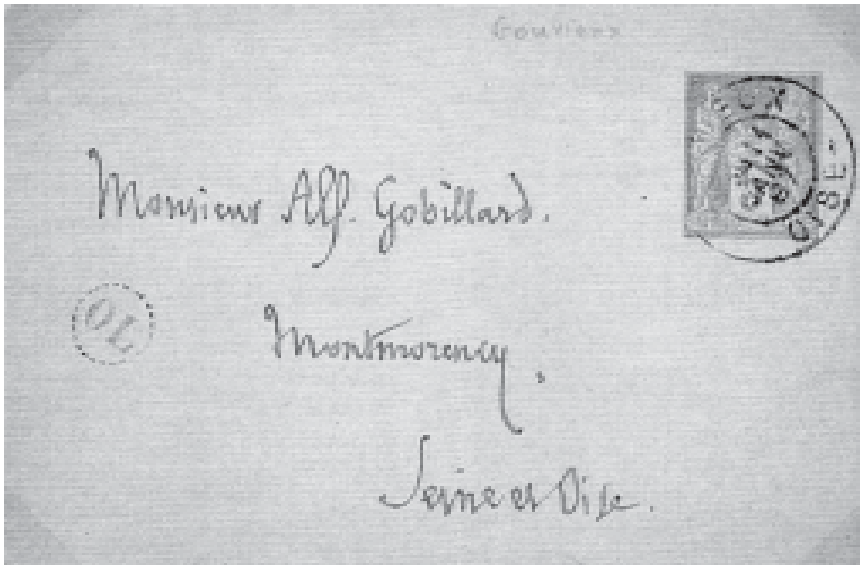 Gouvieux
Monsieur Alf. Gobillard.
OL
Montmorency.
Seine et Oise.